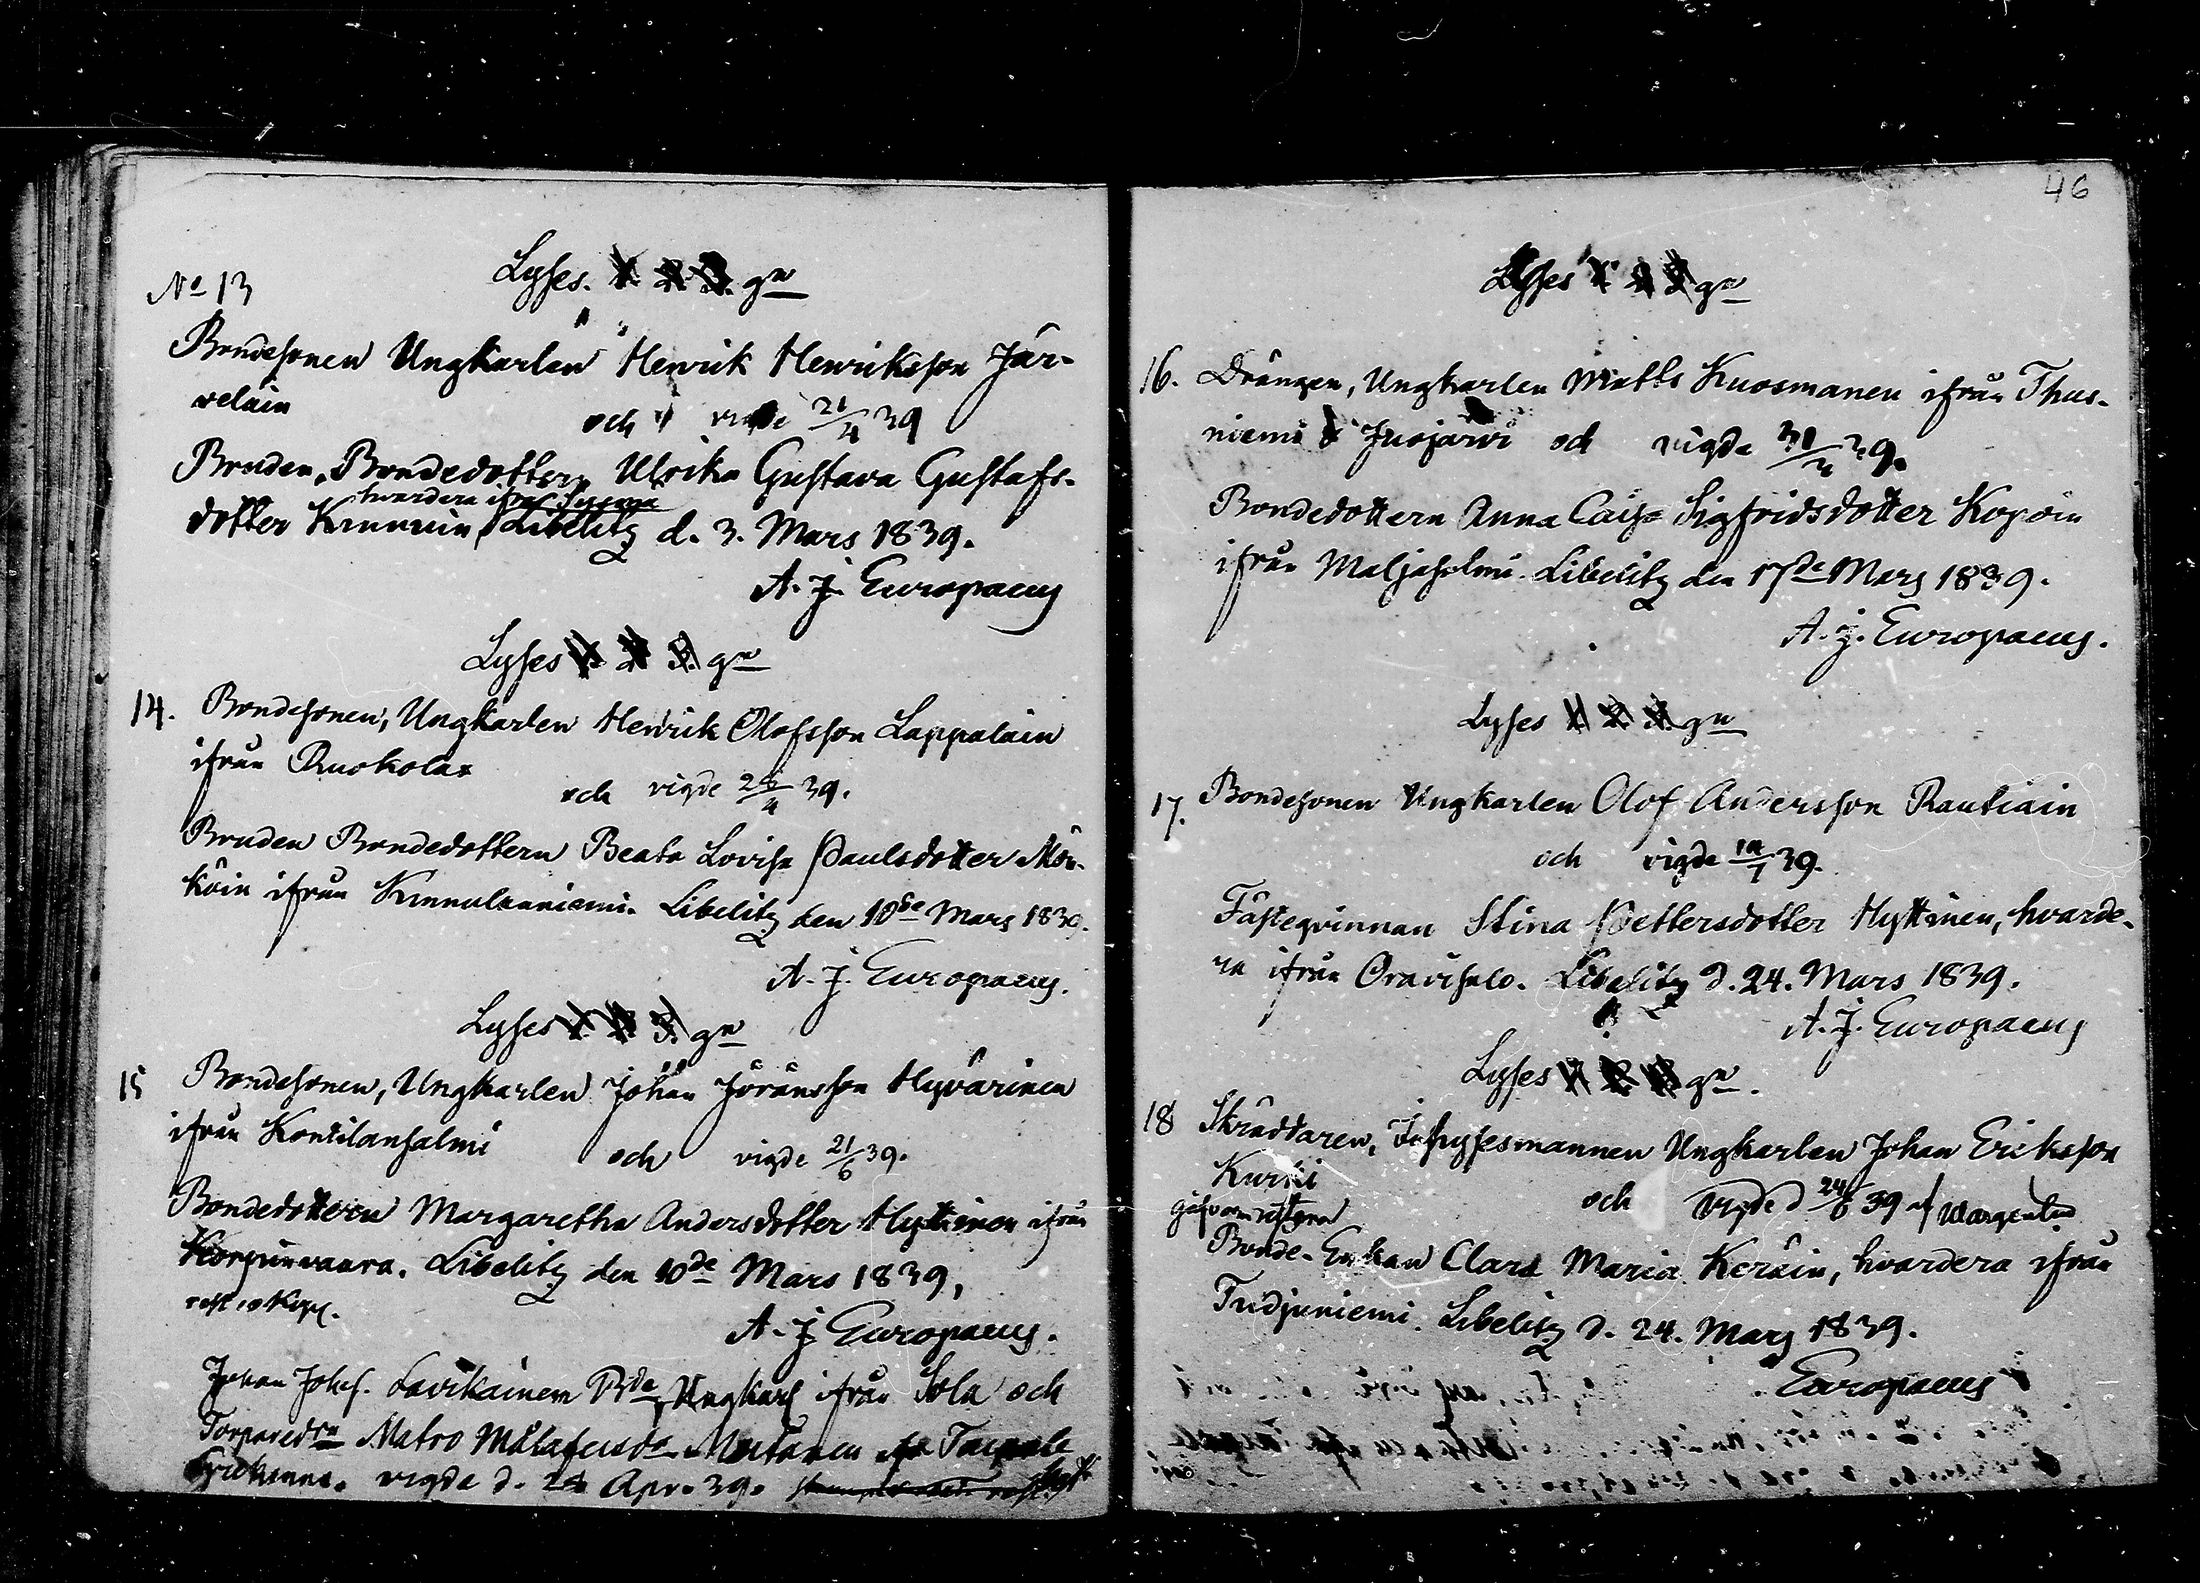 46
No 13
Lyses. 1. 2. 3. gn
Bondesonen Ungkarlen Henrik Henriksson Jär-
veläin
och vigde 21/4 39
Bruden, Bondedottern Ulrika Gustava Gustafs-
hvardera ifrån
dotter Libelitz d. 3. Mars 1839.
A. J. Europaeus
Lyses 1. 2. 3. gn
14. Bondesonen, Ungkarlen Henrik Olofsson Lappalain
ifrån Ruokolax
och vigde 28/4 39.
Bruden Bondedottern Beata Lovisa Paulsdotter Mön-
köin ifrån Kinnulanniemi. Libelitz den 10de Mars 1839.
A. J. Europaeus.
Lyses 1. 2. 3. gn
15 Bondesonen, Ungkarlen Johan Göransson Hyvärinen
ifrån Kontilansalmi
och vigde 21/6 39.
Bondedottern Margaretha Andersdotter Hyttinen ifrån
Korpiinvaara. Libelitz den 10de Mars 1839,
A. J. Europaeus.
Johan Johsf. Lavikainen Bde Ungkarl ifrån Sola och
Torparedrn Matro
vigde d. 28 Apr. 39.
Lyses 1 2 3 gn
16. Drängen, Ungkarlen Matts Kuosmanen ifrån Thus-
niemi Juojärvi och vigde 39.
Bondedottern Anna Caisa Sigfridsdotter Kopoin
ifrån Maljasalmi. Libelitz den 17de Mars 1839.
A. J. Europaeus.
Lyses 1 2 3. gn
17. Bondesonen Ungkarlen Olof Andersson Rautiain
och vigde 39.
Fästeqvinnan Stina Pettersdotter Hyttinen, hvarde-
ra ifrån Oravisalo. Libelitz d. 24. Mars 1839.
A. J. Europaeus
Lyses 1 2 3 gn.
18 Skräddaren, Inhysesmannen Ungkarlen Johan Eriksson
Kurki
och vigde d 24/6 39 af
Bonde-Enkan Clara Maria Keräin, hvardera ifrån
Tudjuniemi. Libelitz d. 24. Mars 1839.
Europaeus